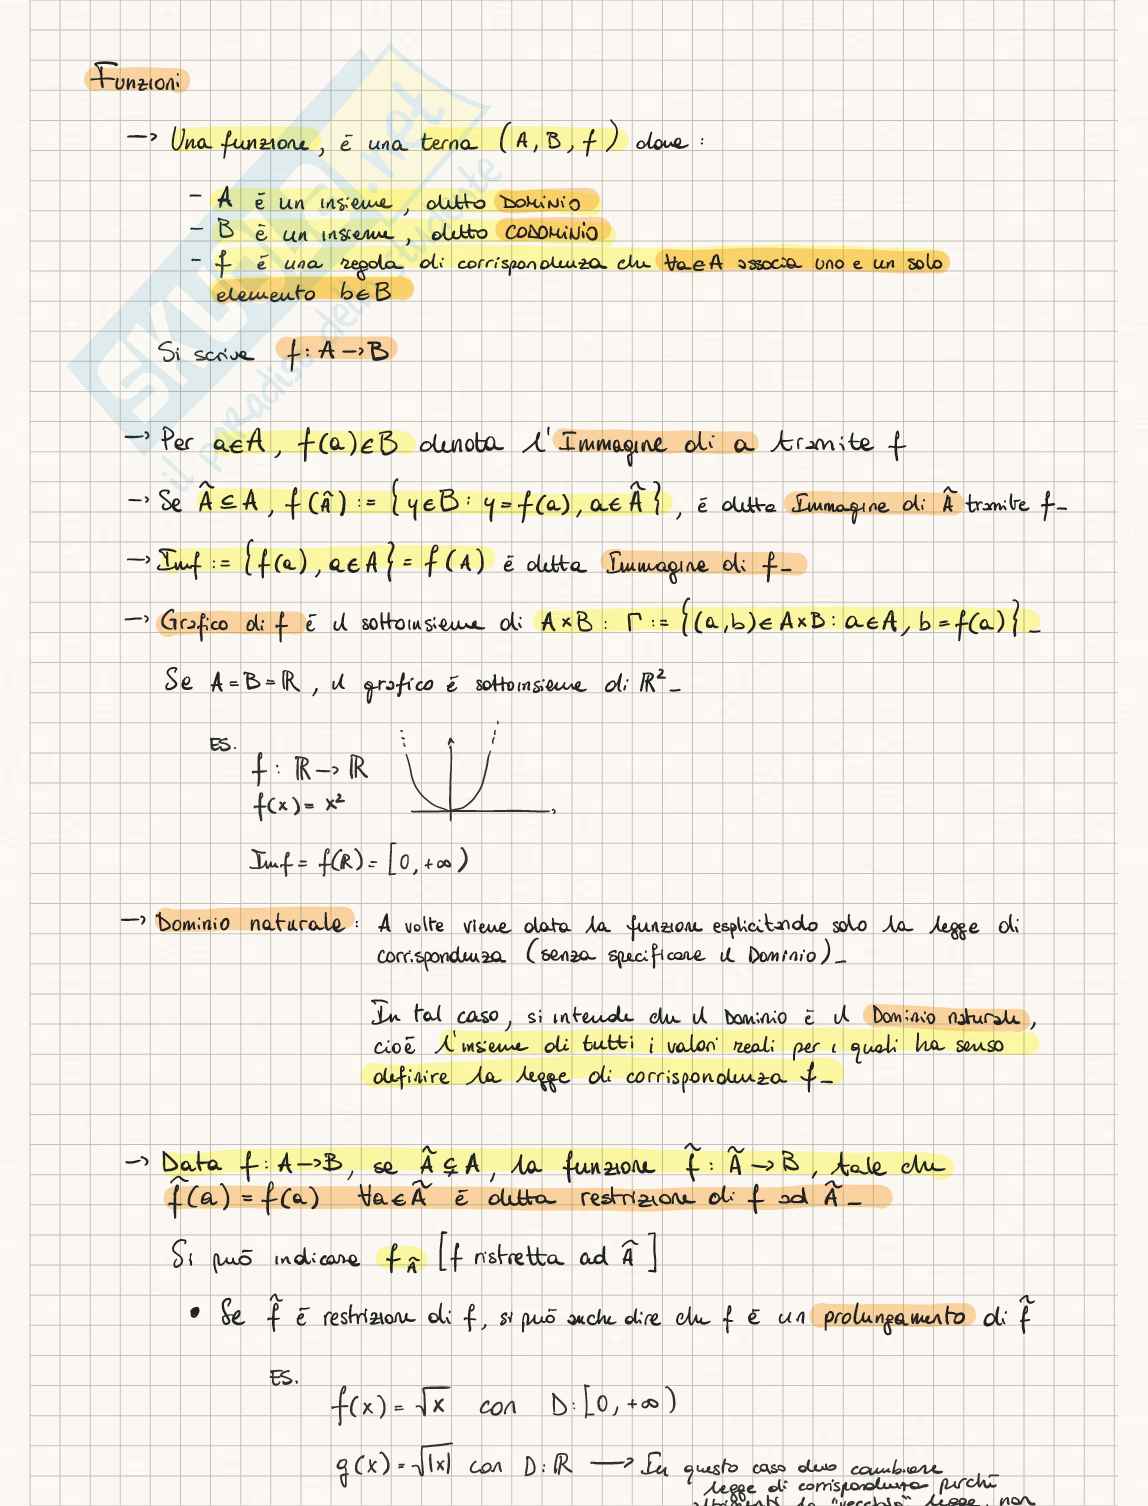 Funzioni
→ Una funzione, è una terna (A, B, f) dove :
- A è un insieme, detto DOMINIO
- B è un insieme, detto CODOMINIO
- f è una regola di corrispondenza che ∀a∈A associa uno e un solo
elemento b∈B
Si scrive f : A → B
→ Per a∈A, f(a)∈B denota l'Immagine di a tramite f
→ Se Ã ⊆ A, f(Ã) := {y∈B : y = f(a), a∈Ã}, è detta Immagine di Ã tramite f_
→ Imf := {f(a), a∈A} = f(A) è detta Immagine di f_
→ Grafico di f è il sottoinsieme di A×B : Γ := {(a,b)∈A×B : a∈A, b = f(a)}_
Se A=B=ℝ, il grafico è sottoinsieme di ℝ²_
ES.
f : ℝ → ℝ
f(x) = x²
Imf = f(ℝ) = [0, +∞)
→ Dominio naturale : A volte viene data la funzione esplicitando solo la legge di
corrispondenza (senza specificare il Dominio)_
In tal caso, si intende che il Dominio è il Dominio naturale,
cioè l'insieme di tutti i valori reali per i quali ha senso
definire la legge di corrispondenza f_
→ Data f : A → B, se Ã ⊊ A, la funzione f̃ : Ã → B, tale che
f̃(a) = f(a) ∀a∈Ã è detta restrizione di f ad Ã_
Si può indicare f_Ã [f ristretta ad Ã]
• Se f̃ è restrizione di f, si può anche dire che f è un prolungamento di f̃
ES.
f(x) = √x con D: [0, +∞)
g(x) = √|x| con D: ℝ → In questo caso devo cambiare
legge di corrispondenza perché
altrimenti la "vecchia" legge non
SKUOLA.net
il paradiso dello studente